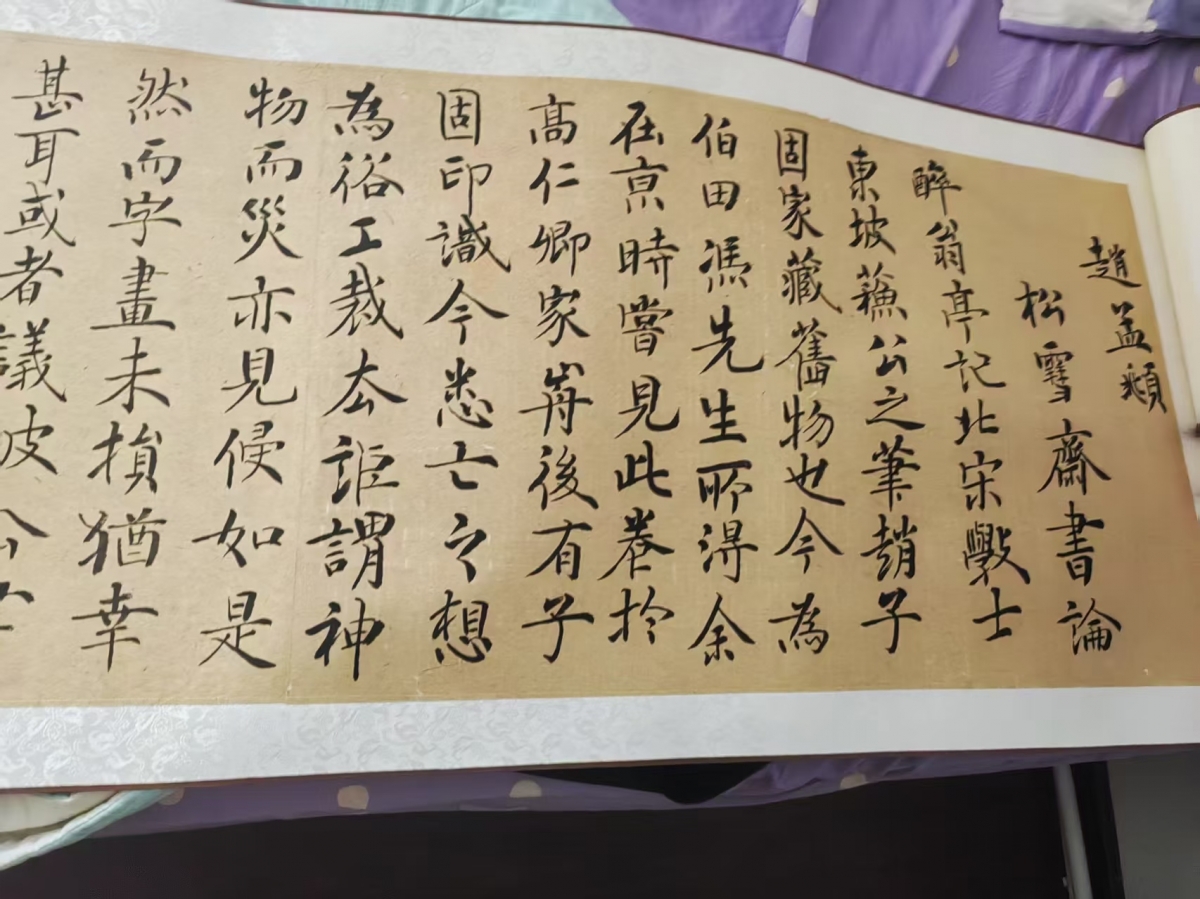 趙孟頫
松雪齋書論
醉翁亭記北宋斅士
東坡蘓公之筆趙子
固家藏舊物也今為
伯田馮先生所得余
在京時嘗見此卷於
高仁卿家前後有子
固印識今悉亡之想
為俗工裁去詎謂神
物而災亦見侵如是
然而字畫未損猶幸
甚耳或者議坡公